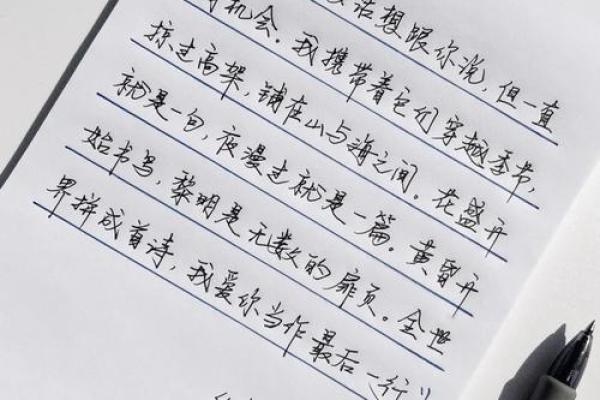 话想跟你说，但一直
机会。我携带着它们穿越季节，
掠过高架，铺在山与海之间。花盛开
就是一句，夜漫过就是一篇。黄昏开
始书写，黎明是无数的扉页。全世
界拼成首诗，我爱你当作最后一行”